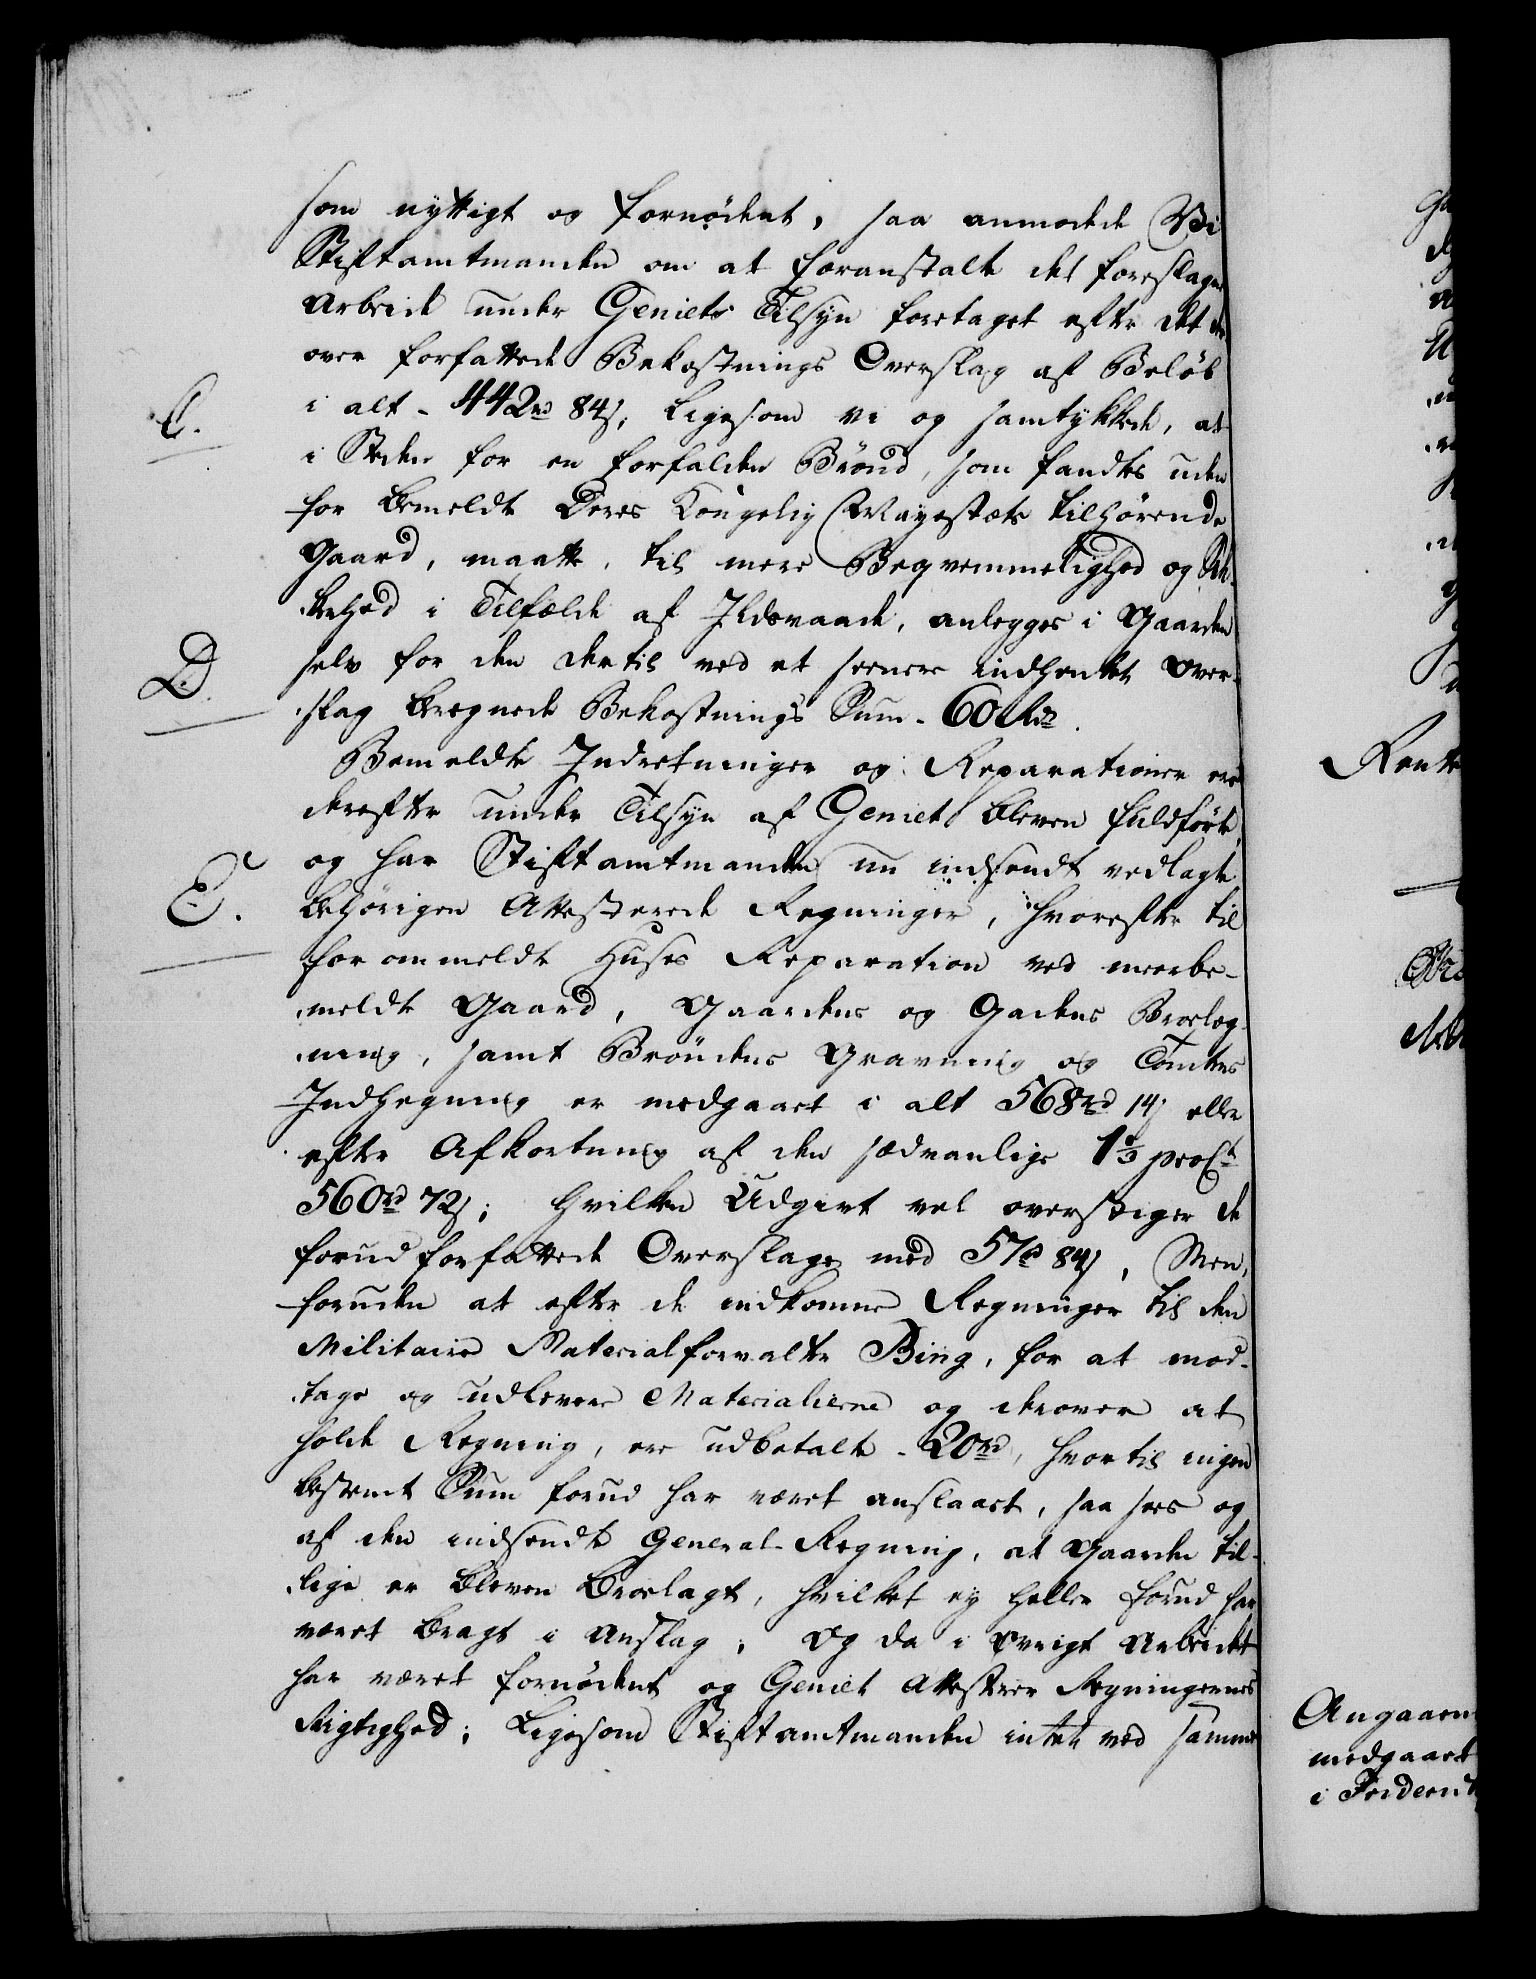 som nyttigt og fornødent, saa anmodede Vi
Stiftamtmanden om at foranstalte det foreslagne
Arbeide under Geniets Tilsyn foretaget efter det der
over forfattede Bekostnings Overslag af Beløb
C.
i alt - 442 rd 84 s; ligesom vi og samtykkede, at
i Steden for en forfalden Brønd, som fandtes uden
for bemeldte Deres Kongelig Mayestæts tilhørende
Gaard, maatte, til mere Beqvemmelighed og Sik-
kerhed i Tilfælde af Ildsvaade, anlegges i Gaarden
D.
selv for den dertil ved et seenere indhentet Over-
slag beregnede Bekostnings Sum - 60 Rd.
Bemeldte Indretninger og Reparationer ere
derefter under Tilsyn af Geniet bleven fuldførte,
E.
og har Stiftamtmanden nu indsendt vedlagte
behørigen Attesterede Regninger, hvorefter til
forommeldte Huses Reparation ved meerbe-
meldte Gaard, Gaardens og Gadens Broelæg-
ning, samt Brøndens Gravning og Tomtens
Indhegning er medgaaet i alt 568 rd 14 s eller
efter Afkortning af den sædvanlige 1 1/3 pro Ct
560 rd 72 s; hvilken Udgivt vel overstiger de
forud forfattede Overslage med 57 rd 84 s, Men,
foruden at efter de indkomne Regninger til den
Militaire Materialforvalter Bing, for at mod-
tage og udlevere Materialierne og derover at
holde Regning, ere udbetalte - 20 rd, hvortil ingen
bestemt Sum forud har været anslaaet, saa sees og
af den indsendte General-Regning, at Gaarden til-
lige er bleven broelagt, hvilket ey heller forud har
været bragt i Anslag; Og da i øvrigt Arbeidet
har været fornødent og Geniet Attesterer Regningernes
Rigtighed; Ligesom Stiftamtmanden intet ved samme
Angaaen
medgaaet
i Friderich